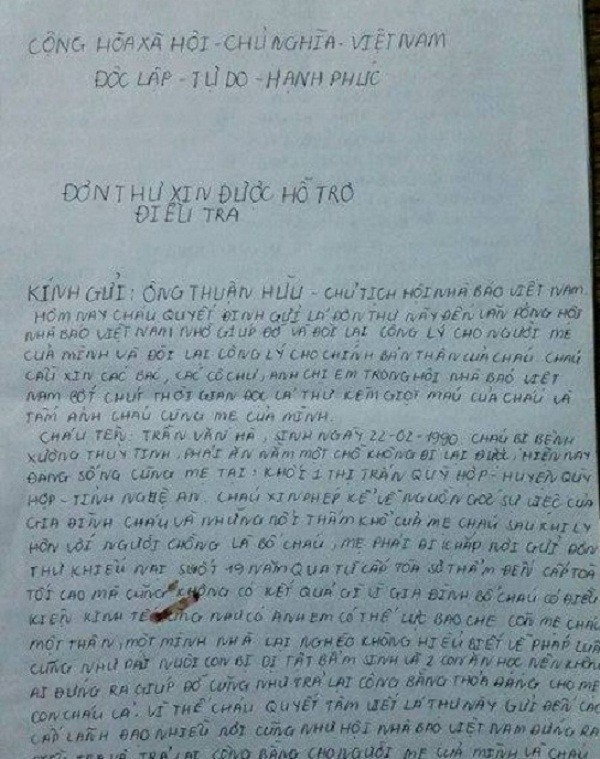 CỘNG HÒA XÃ HỘI - CHỦ NGHĨA - VIỆT NAM
ĐỘC LẬP - TỰ DO - HẠNH PHÚC
ĐƠN THƯ XIN ĐƯỢC HỖ TRỢ
ĐIỀU TRA
KÍNH GỬI: ÔNG THUẬN HỮU - CHỦ TỊCH HỘI NHÀ BÁO VIỆT NAM.
HÔM NAY CHÁU QUYẾT ĐỊNH GỬI LÁ ĐƠN THƯ NÀY ĐẾN VĂN PHÒNG HỘI
NHÀ BÁO VIỆT NAM NHỜ GIÚP ĐỠ VÀ ĐÒI LẠI CÔNG LÝ CHO NGƯỜI MẸ
CỦA MÌNH VÀ ĐÒI LẠI CÔNG LÝ CHO CHÍNH BẢN THÂN CỦA CHÁU. CHÁU
CẦU XIN CÁC BÁC, CÁC CÔ CHÚ, ANH CHỊ EM TRONG HỘI NHÀ BÁO VIỆT
NAM BỚT CHÚT THỜI GIAN ĐỌC LÁ THƯ KÈM GIỌT MÁU CỦA CHÁU VÀ
TẤM ẢNH CHÁU CÙNG MẸ CỦA MÌNH.
CHÁU TÊN: TRẦN VĂN HÀ, SINH NGÀY 22-02-1990. CHÁU BỊ BỆNH
XƯƠNG THỦY TINH, PHẢI ĂN NẰM MỘT CHỖ KHÔNG ĐI LẠI ĐƯỢC, HIỆN NAY
ĐANG SỐNG CÙNG MẸ TẠI: KHỐI 1 THỊ TRẤN QUỲ HỢP - HUYỆN QUỲ
HỢP - TỈNH NGHỆ AN. CHÁU XIN PHÉP KỂ VỀ NGUỒN GỐC SỰ VIỆC CỦA
GIA ĐÌNH CHÁU VÀ NHỮNG NỖI THẢM KHỔ CỦA MẸ CHÁU SAU KHI LY
HÔN VỚI NGƯỜI CHỒNG LÀ BỐ CHÁU, MẸ PHẢI ĐI KHẮP NƠI GỬI ĐƠN
THƯ KHIẾU NẠI SUỐT 19 NĂM QUA TỪ CẤP TÒA SƠ THẨM ĐẾN CẤP TÒA
TỐI CAO MÀ CŨNG KHÔNG CÓ KẾT QUẢ GÌ VÌ GIA ĐÌNH BỐ CHÁU CÓ ĐIỀU
KIỆN KINH TẾ CŨNG NHƯ CÓ ANH EM CÓ THẾ LỰC BAO CHE CÒN MẸ CHÁU
MỘT THÂN, MỘT MÌNH NHÀ LẠI NGHÈO KHÔNG HIỂU BIẾT VỀ PHÁP LUẬT
CŨNG NHƯ PHẢI NUÔI CON BỊ DỊ TẬT BẨM SINH VÀ 2 CON ĂN HỌC NÊN KHÔNG
AI ĐỨNG RA GIÚP ĐỠ CŨNG NHƯ TRẢ LẠI CÔNG BẰNG THỎA ĐÁNG CHO MẸ
CON CHÁU CẢ. VÌ THẾ CHÁU QUYẾT TÂM VIẾT LÁ THƯ NÀY GỬI ĐẾN CÁC
CẤP LÃNH ĐẠO NHIỀU NƠI CŨNG NHƯ HỘI NHÀ BÁO VIỆT NAM ĐỨNG RA
TRẢ LẠI CÔNG BẰNG CHO NGƯỜI MẸ CỦA MÌNH VÀ CHÁU